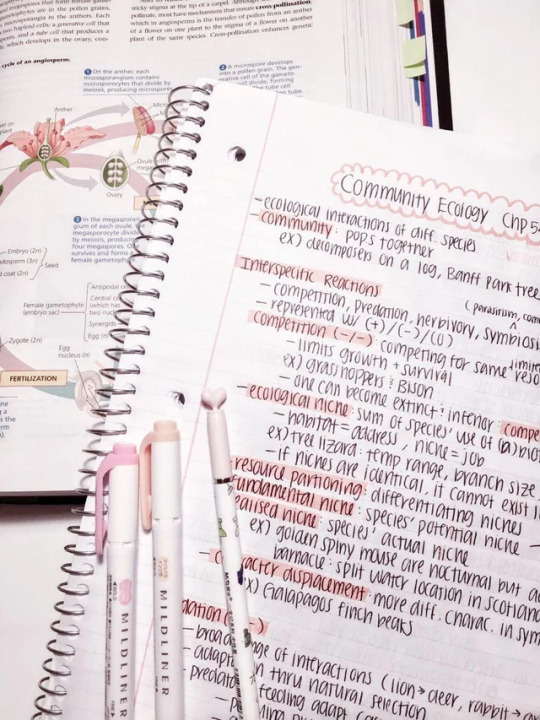 atophytes that form female game-
tophytes are in the pollen grains,
microsporangia in the anthers. Each
two haploid cells: a generative cell that
sperm, and a tube cell that produces a
which develops in the ovary, con-
sticky stigma at the tip of a carpel. Although
pollinate, most have mechanisms that ensure cross-pollination,
which in angiosperms is the transfer of pollen from an anther
of a flower on one plant to the stigma of a flower on another
plant of the same species. Cross-pollination enhances genetic
cycle of an angiosperm.
1 On the anther, each
microsporangium contains
microsporocytes that divide by
meiosis, producing microspores.
2 A microspore develops
into a pollen grain. The gen-
erative cell of the gameto-
will divide, forming
the tube cell
tube.
Anther
Ovary
3 In the megasporan-
gium of each ovule, the
megasporocyte divides
by meiosis, producing
four megaspores. One
survives and forms a
female gametophyte.
Embryo (2n)
endosperm (3n)
coat (2n)
Seed
Female gametophyte
(embryo sac)
Antipodal
Central
(which has
two
Synergids
Egg (n)
Zygote (2n)
Egg
nucleus (n)
FERTILIZATION
Community Ecology Chp 5
- ecological interactions of diff. species
- community: pops together
ex) decomposers on a log, Banff Park tree
Interspecific Reactions
(parasitism, com
- competition, predation, herbivory, symbiosi
- represented w/ (+)/(-)/(0)
competition (-/-): competing for same limiti
reso
- limits growth + survival
ex) grasshoppers + Bison
- one can become extinct: inferior compe
- ecological niche: sum of species' use of (a)biot
- habitat = address, niche = job
ex) tree lizard: temp range, branch size,
- if niches are identical, it cannot exist i
resource partioning: differentiating niches
fundamental niche: species' potential niche
realised niche: species' actual niche
ex) golden spiny mouse are nocturnal but a
barnacle: split water location in scotland
character displacement: more diff. charac. in sym
ex) Galapagos finch beaks
dation
- broad range of interactions (lion → deer, rabbit →
- adapt in thru natural selection
- predato
feeding adapt
MILDLINER
MILDLINER